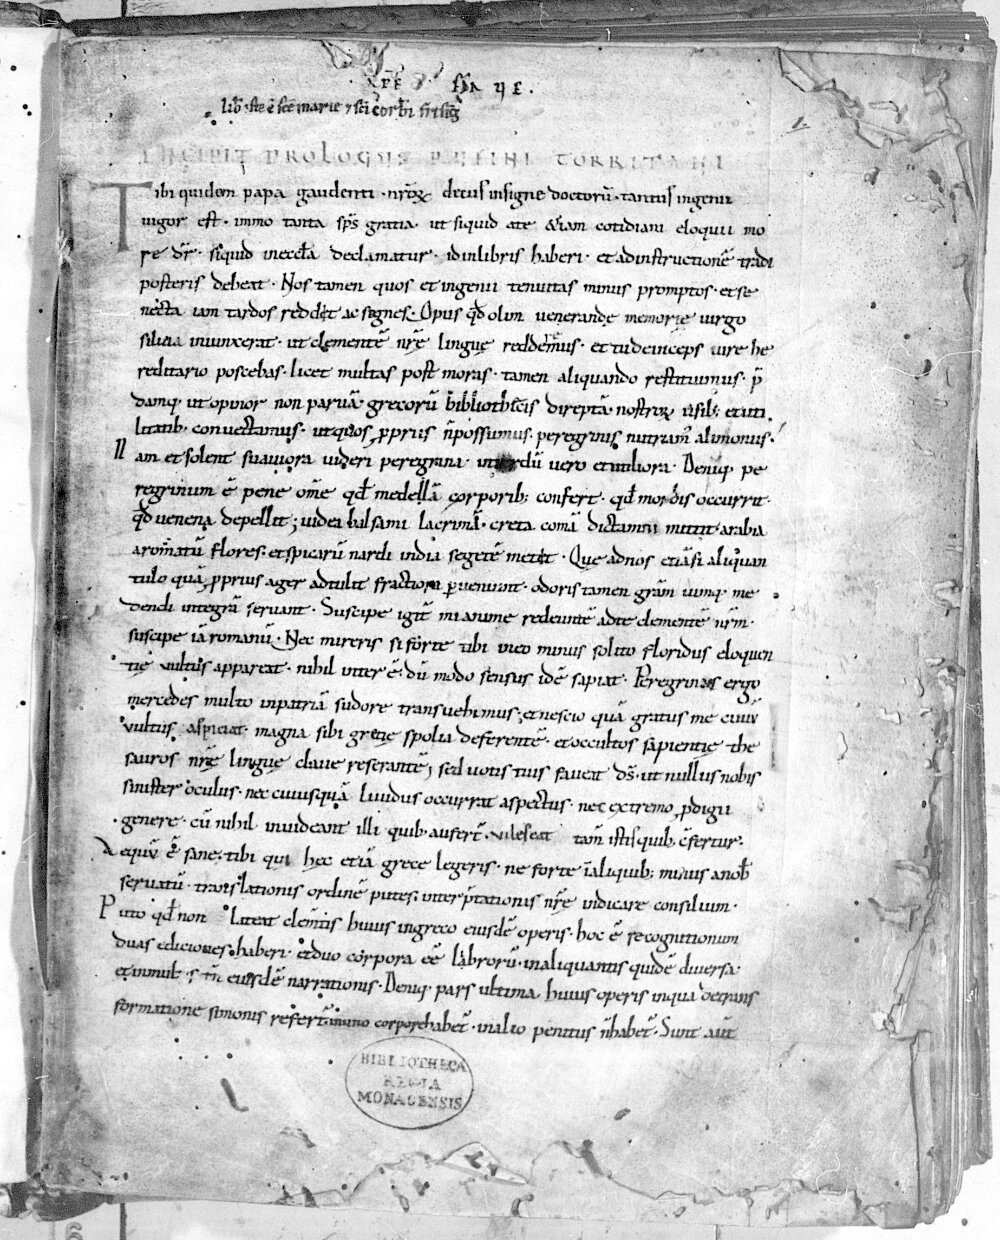 lib̄ iste ē scē marie ⁊ sci corb̄i frisīg
INCIPIT PROLOGUS RUFINI TORRITANI
Tibi quidem papa gaudenti · nr̄oꝝ decus insigne doctorū · tantus ingenii
uigor est · immo tanta sp̄s gratia · ut siquid a te etiam cotidiani eloquii mo
re dr̄ · siquid in eccl̄a declamatur · id in libris haberi · et ad instructionē tradi
posteris debeat · Nos tamen quos et ingenii tenuitas minus promptos · et se
necta iam tardos reddit ac segnes · Opus qd̄ olim uenerandę memorię uirgo
siluia iniunxerat · ut clementē nr̄ę linguę redderemus · et tu deinceps iure he
reditario poscebas · licet multas post moras · tamen aliquando restituimus · p̄
damq; ut opinor non paruā · grecorū bibliothecis direptā · nostroꝝ usib; et uti
litatib; conuectamus · ut quos ꝓpriis n̄ possumus · peregrinis nutriam̄ alimoniis ·
Nam et solent suauiora uideri peregrina · interdū uero et utiliora · Deniq; pe
regrinum ē pene om̄e qd̄ medellā corporib; confert · qd̄ morbis occurrit ·
qd̄ uenena depellit ; iudea balsami lacrimā · creta comā dictamni mittit · arabia
aromatū flores · et spicarū nardi india segetē metet · Que ad nos etiāsi aliquan
tulo quā ꝓprius ager adtulit fractiora ꝑueniunt · odoris tamen grām uimq; me
dendi integrā seruant · Suscipe igit̄ mi anime redeuntē ad te clementē nr̄m ·
suscipe iā romanū · Nec mireris si forte tibi uico minus solito floridus eloquen
tię uultus appareat · nihil inter ē · dū modo sensus idē sapiat · Peregrinas ergo
mercedes multo in patriā sudore transuehimus · et nescio quā gratus me ciuiū
uultus aspiciat · magna sibi gretię spolia deferentē · et occultos sapientię the
sauros nr̄ę linguę claue reserantē ; sed uotis tuis faueat d̄s · ut nullus nobis
sinister oculus · nec cuiusquā liuidus occurrat aspectus · nec extremo ꝓdigii
genere · cū nihil inuideant illi quib; aufert̄ · uilescat tam̄ istis quib; c̄fertur ·
Aequū ē sane · tibi qui hęc etiā grece legeris · ne forte in aliquib; minus a nob̄
seruatū · translationis ordinē putes · interp̄tationis nr̄ę indicare consilium ·
Puto qd̄ non lateat clem̄tis huius in greco eiusdē operis · hoc ē recognitionum
duas ediciones haberi · et duo corpora eē librorū · in aliquantis quidē diuersa
et in multis tn̄ eiusdē narrationis · Deniq; pars ultima huius operis in qua de trans
formatione simonis refert̄ · in uno corpore habet̄ · in alio penitus n̄ habet̄ · Sunt aut̄
BIBLIOTHECA
REGIA
MONACENSIS